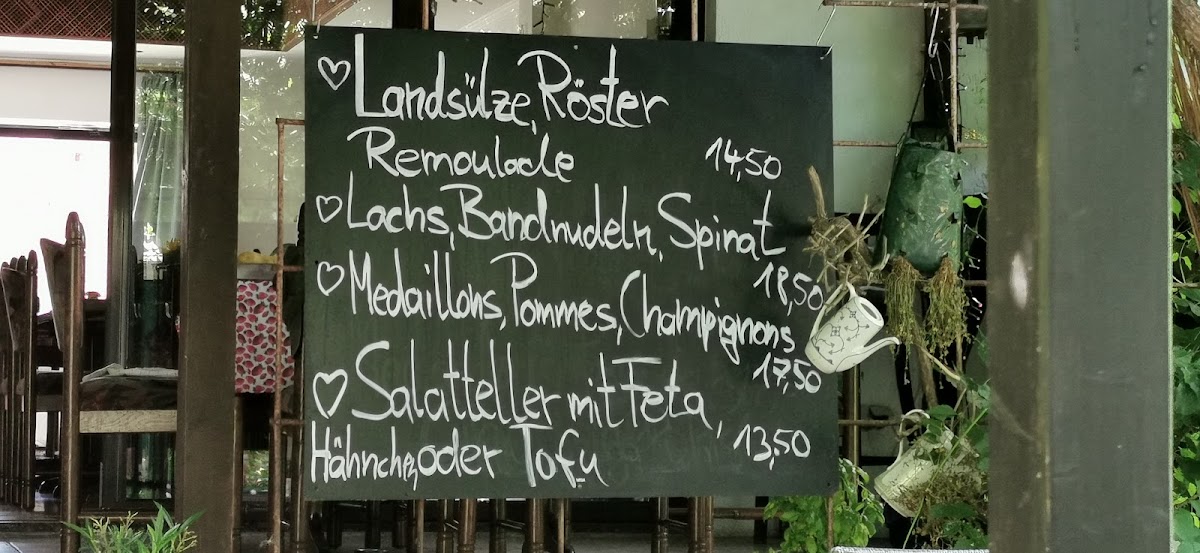 ♡ Landsülze, Röster
Remoulade 14,50
♡ Lachs, Bandnudeln, Spinat
18,50
♡ Medaillons, Pommes, Champignons
17,50
♡ Salatteller mit Feta,
Hähnchen, oder Tofu 13,50